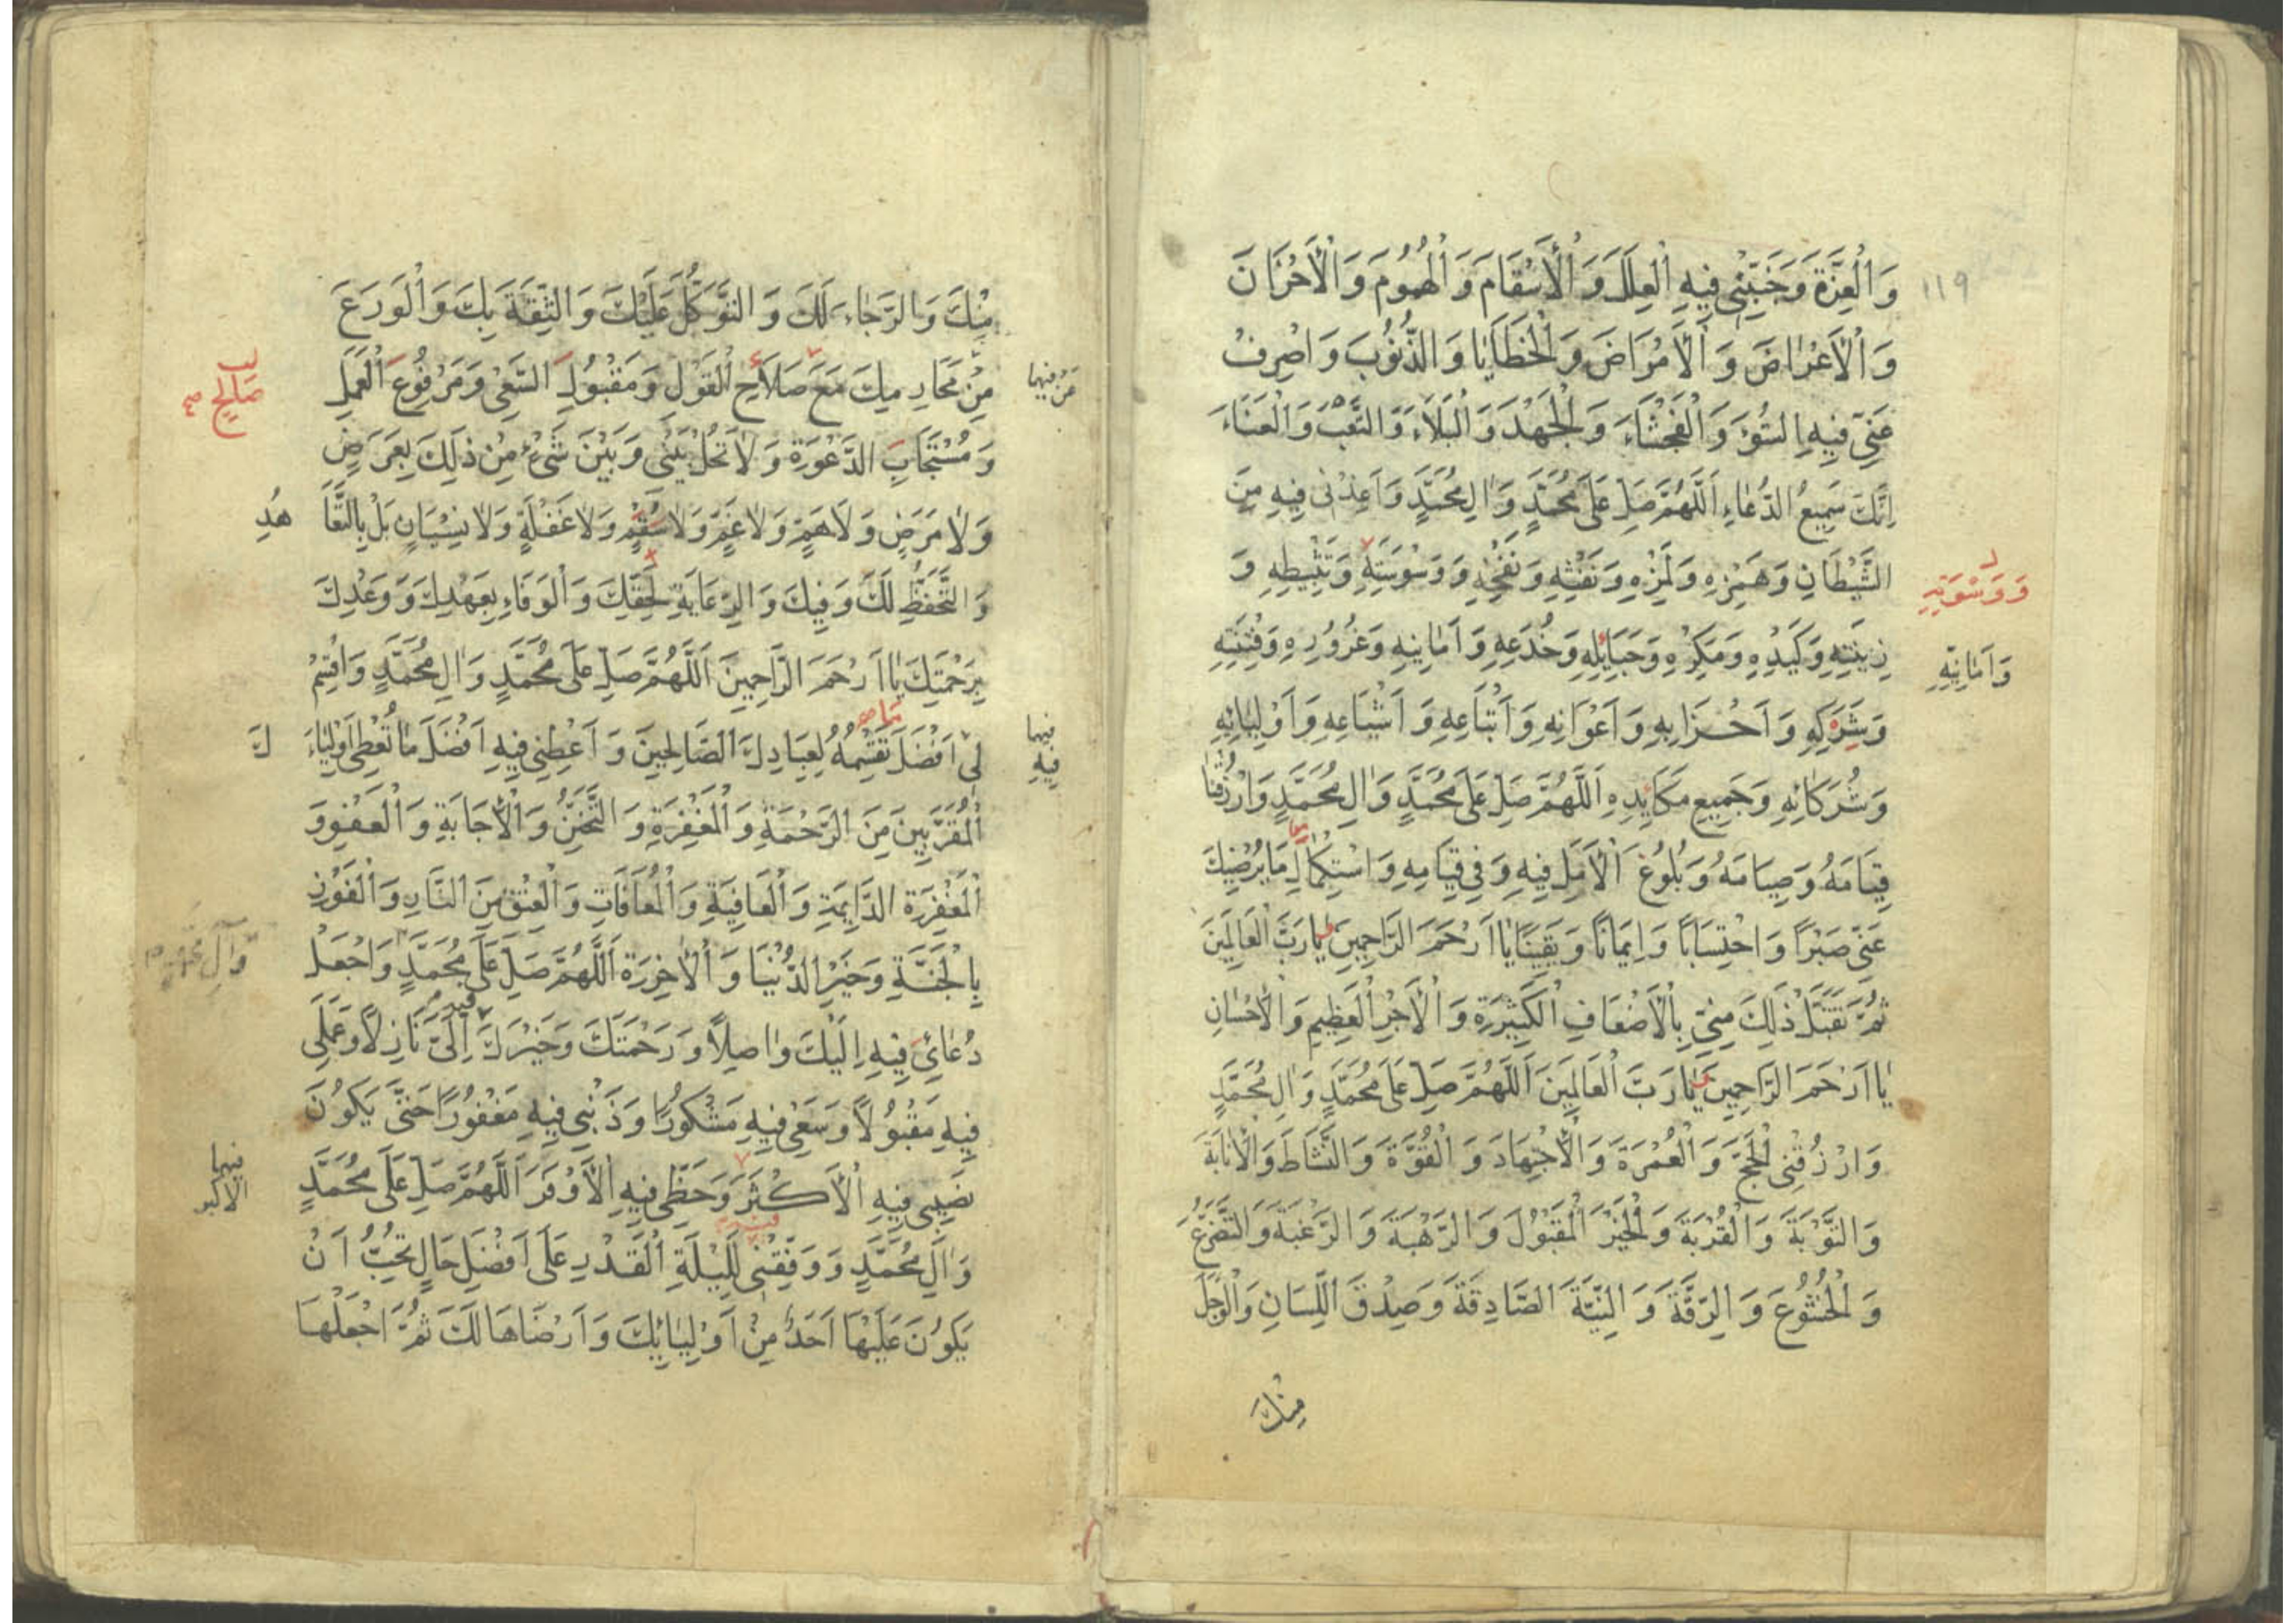 ١١٩
وَالْعِزَّةَ وَجَنِّبْنِى فِيهِ الْعِلَلَ وَالْأَسْقَامَ وَالْهُمُومَ وَالْأَحْزَانَ
وَالْأَعْرَاضَ وَالْأَمْرَاضَ وَالْخَطَايَا وَالذُّنُوبَ وَاصْرِفْ
عَنِّى فِيهِ السُّوءَ وَالْفَحْشَاءَ وَالْجَهْدَ وَالْبَلَاءَ وَالتَّعَبَ وَالْعَنَاءَ
اِنَّكَ سَمِيعُ الدُّعَاءِ اَللَّهُمَّ صَلِّ عَلَى مُحَمَّدٍ وَالِ مُحَمَّدٍ وَاَعِذْنِى فِيهِ مِنَ
الشَّيْطَانِ وَهَمْزِهِ وَلَمْزِهِ وَنَفْثِهِ وَنَفْخِهِ وَوَسْوَسَتِهِ وَتَثْبِيطِهِ وَ
زِينَتِهِ وَكَيْدِهِ وَمَكْرِهِ وَحَبَائِلِهِ وَخُدَعِهِ وَاَمَانِيهِ وَغُرُورِهِ وَفِتْنَتِهِ
وَاَمَانِيِّهِ
وَشَرَكِهِ وَاَحْزَابِهِ وَاَعْوَانِهِ وَاَتْبَاعِهِ وَاَشْيَاعِهِ وَاَوْلِيَائِهِ
وَشُرَكَائِهِ وَجَمِيعِ مَكَائِدِهِ اَللَّهُمَّ صَلِّ عَلَى مُحَمَّدٍ وَالِ مُحَمَّدٍ وَارْزُقْنَا
قِيَامَهُ وَصِيَامَهُ وَبُلُوغَ الْاَمَلِ فِيهِ وَفِى قِيَامِهِ وَاسْتِكْمَالِ مَا يُرْضِيكَ
عَنِّى صَبْرًا وَاحْتِسَابًا وَاِيمَانًا وَيَقِينًا يَا اَرْحَمَ الرَّاحِمِينَ يَا رَبَّ الْعَالَمِينَ
ثُمَّ تَقَبَّلْ ذَلِكَ مِنِّى بِالْأَضْعَافِ الْكَثِيرَةِ وَالْأَجْرِ الْعَظِيمِ وَالْأِحْسَانِ
يَا اَرْحَمَ الرَّاحِمِينَ يَا رَبَّ الْعَالَمِينَ اَللَّهُمَّ صَلِّ عَلَى مُحَمَّدٍ وَالِ مُحَمَّدٍ
وَارْزُقْنِى الْحَجَّ وَالْعُمْرَةَ وَالْأِجْتِهَادَ وَالْقُوَّةَ وَالنَّشَاطَ وَالْأِنَابَةَ
وَالتَّوْبَةَ وَالْقُرْبَةَ وَالْخَيْرَ الْمَقْبُولَ وَالرَّهْبَةَ وَالرَّغْبَةَ وَالتَّضَرُّعَ
وَالْخُشُوعَ وَالرِّقَّةَ وَالنِّيَّةَ الصَّادِقَةَ وَصِدْقَ اللِّسَانِ وَالْوَجَلَ
مِنْكَ
مِنْكَ وَالرَّجَاءَ لَكَ وَالتَّوَكُّلَ عَلَيْكَ وَالثِّقَةَ بِكَ وَالْوَرَعَ
مِنْ مَحَارِمِكَ مَعَ صَلَاحِ الْقَوْلِ وَمَقْبُولِ السَّعْىِ وَمَرْفُوعِ الْعَمَلِ
صَالِحِ
وَمُسْتَجَابِ الدَّعْوَةِ وَلَا تَحُلْ بَيْنِى وَبَيْنَ شَىْءٍ مِنْ ذَلِكَ بِعَرَضٍ
وَلَا مَرَضٍ وَلَا هَمٍّ وَلَا غَمٍّ وَلَا سُقْمٍ وَلَا غَفْلَةٍ وَلَا نِسْيَانٍ بَلْ بِالتَّعَاهُدِ
وَالتَّحَفُّظِ لَكَ وَفِيكَ وَالرِّعَايَةِ لِحَقِّكَ وَالْوَفَاءِ بِعَهْدِكَ وَوَعْدِكَ
بِرَحْمَتِكَ يَا اَرْحَمَ الرَّاحِمِينَ اَللَّهُمَّ صَلِّ عَلَى مُحَمَّدٍ وَالِ مُحَمَّدٍ وَاقْسِمْ
لِى اَفْضَلَ تَقْسِمُهُ لِعِبَادِكَ الصَّالِحِينَ وَاَعْطِنِى فِيهِ اَفْضَلَ مَا تُعْطِى اَوْلِيَاءَكَ
فِيهِ
الْمُقَرَّبِينَ مِنَ الرَّحْمَةِ وَالْمَغْفِرَةِ وَالتَّحَنُّنِ وَالْأِجَابَةِ وَالْعَفْوِ وَ
الْمَغْفِرَةِ الدَّايِمَةِ وَالْعَافِيَةِ وَالْمُعَافَاتِ وَالْعِتْقِ مِنَ النَّارِ وَالْفَوْزِ
بِالْجَنَّةِ وَخَيْرِ الدُّنْيَا وَالْأَخِرَةِ اَللَّهُمَّ صَلِّ عَلَى مُحَمَّدٍ وَاجْعَلْ
وَآلِ مُحَمَّدٍ
دُعَائِى فِيهِ اِلَيْكَ وَاصِلًا وَرَحْمَتَكَ وَخَيْرَكَ اِلَىَّ نَازِلًا وَعَمَلِى
فِيهِ مَقْبُولًا وَسَعْىِ فِيهِ مَشْكُورًا وَذَنْبِى فِيهِ مَغْفُورًا حَتَّى يَكُونَ
نَصِيبِى فِيهِ الْأَكْثَرَ وَحَظِّى فِيهِ الْأَوْفَرَ اَللَّهُمَّ صَلِّ عَلَى مُحَمَّدٍ
فيهما
الاكبر
وَالِ مُحَمَّدٍ وَوَفِّقْنِى لِلَيْلَةِ الْقَدْرِ عَلَى اَفْضَلِ حَالٍ تُحِبُّ اَنْ
يَكُونَ عَلَيْهَا اَحَدٌ مِنْ اَوْلِيَائِكَ وَاَرْضَاهَا لَكَ ثُمَّ اجْعَلْهَا